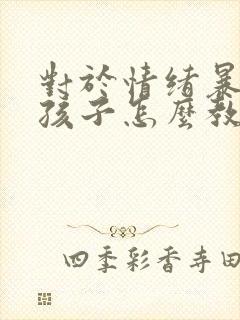 對於情緒暴
孩子怎麼教
四季彩香寺田